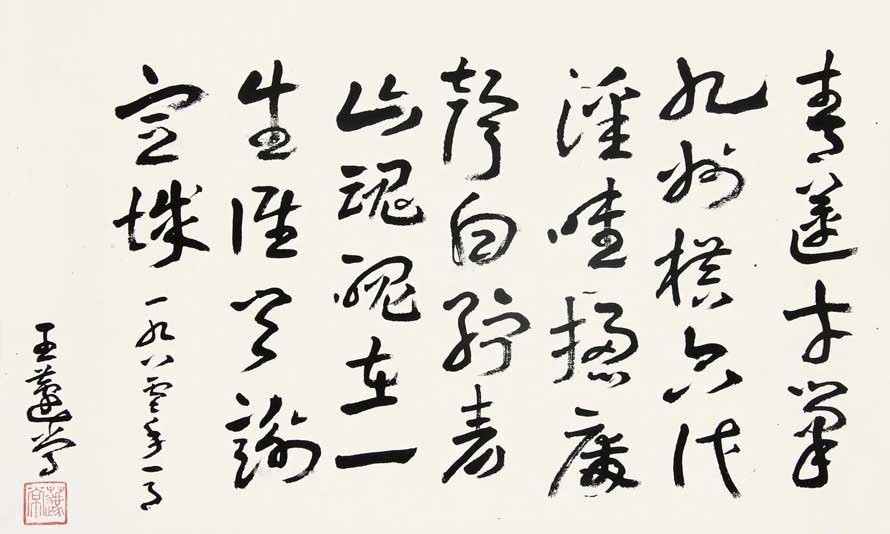 青蓮才筆
九州橫六代
淫哇揔廢
聲白紵青
山魂魄在一
生低首謝
宣城 一九八零年一月
王蘧常
蘧常